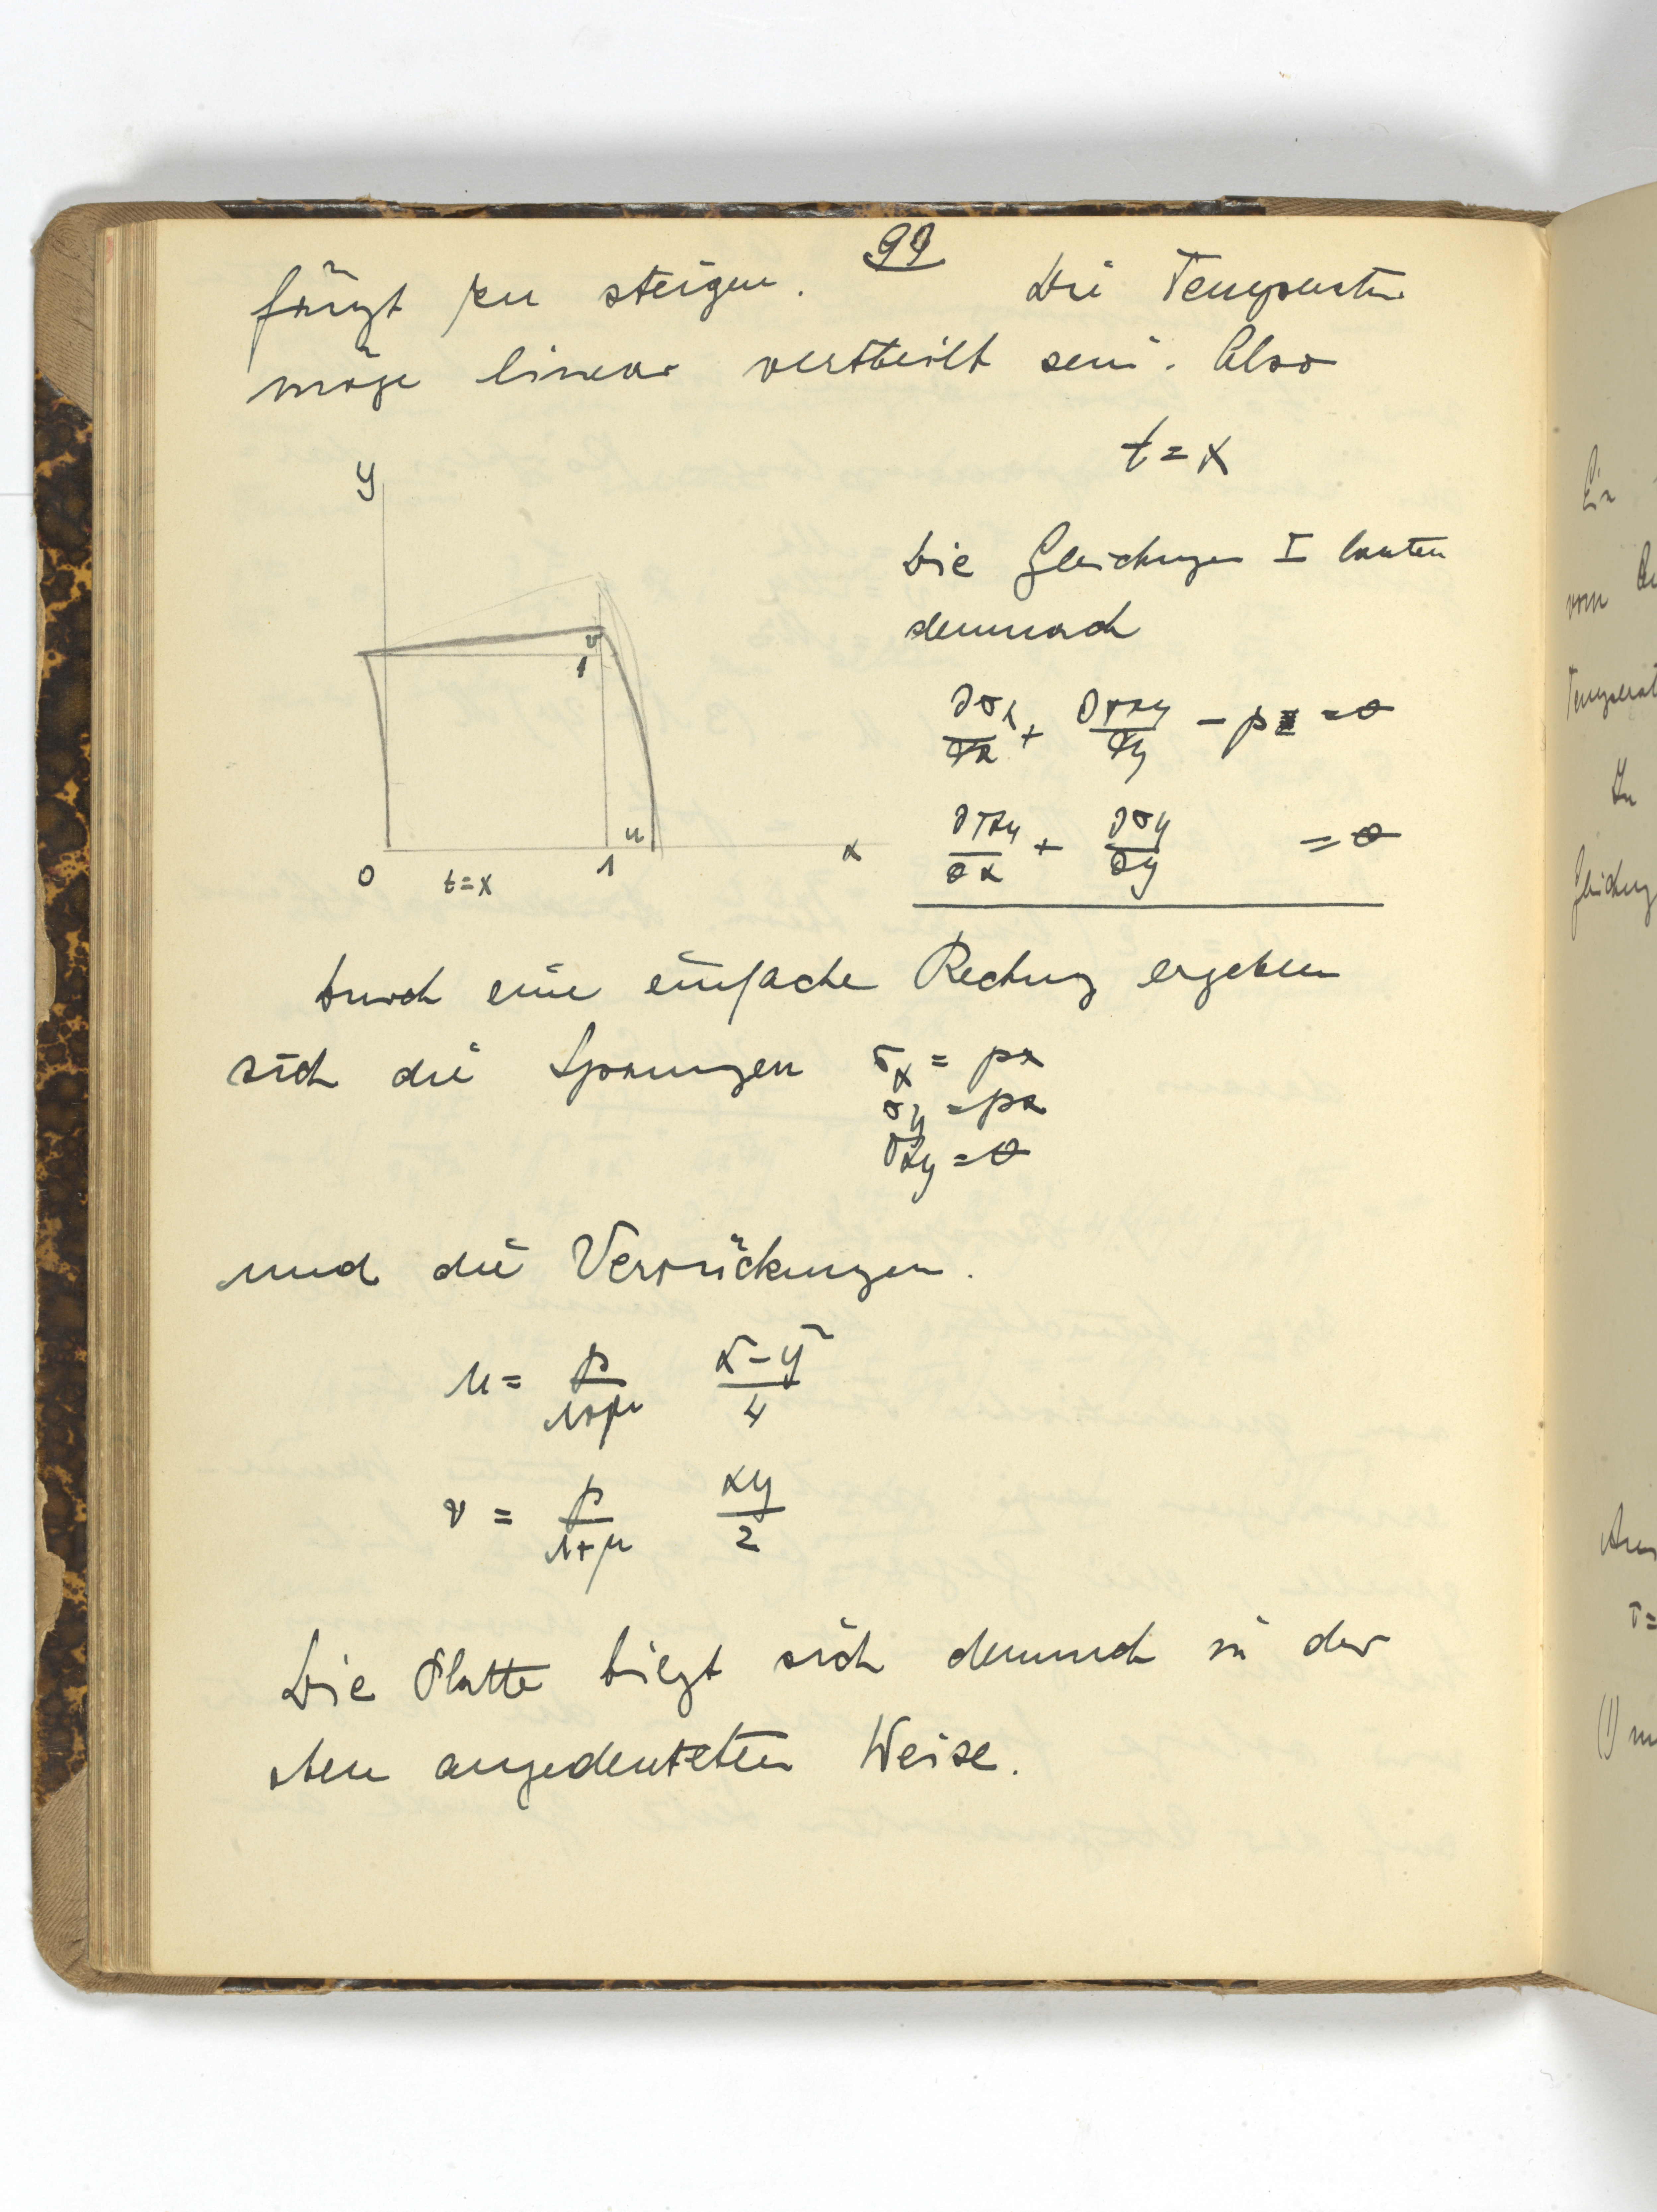 99
fängt zu steigen. Die Temperatur
möge linear verteilt sein. Also
t = x
y
Die Gleichungen I lauten
demnach
v
1
∂σx/∂x + ∂τxy/∂y − p = 0
∂τxy/∂x + ∂σy/∂y = 0
u
x
0 t=x 1
Durch eine einfache Rechnung ergeben
sich die Spannungen σx = px
σy = px
τxy = 0
und die Verrückungen.
u = p/(1+μ) (x²−y²)/4
v = p/(1+μ) xy/2
Die Platte biegt sich demnach in der
oben angedeuteten Weise.